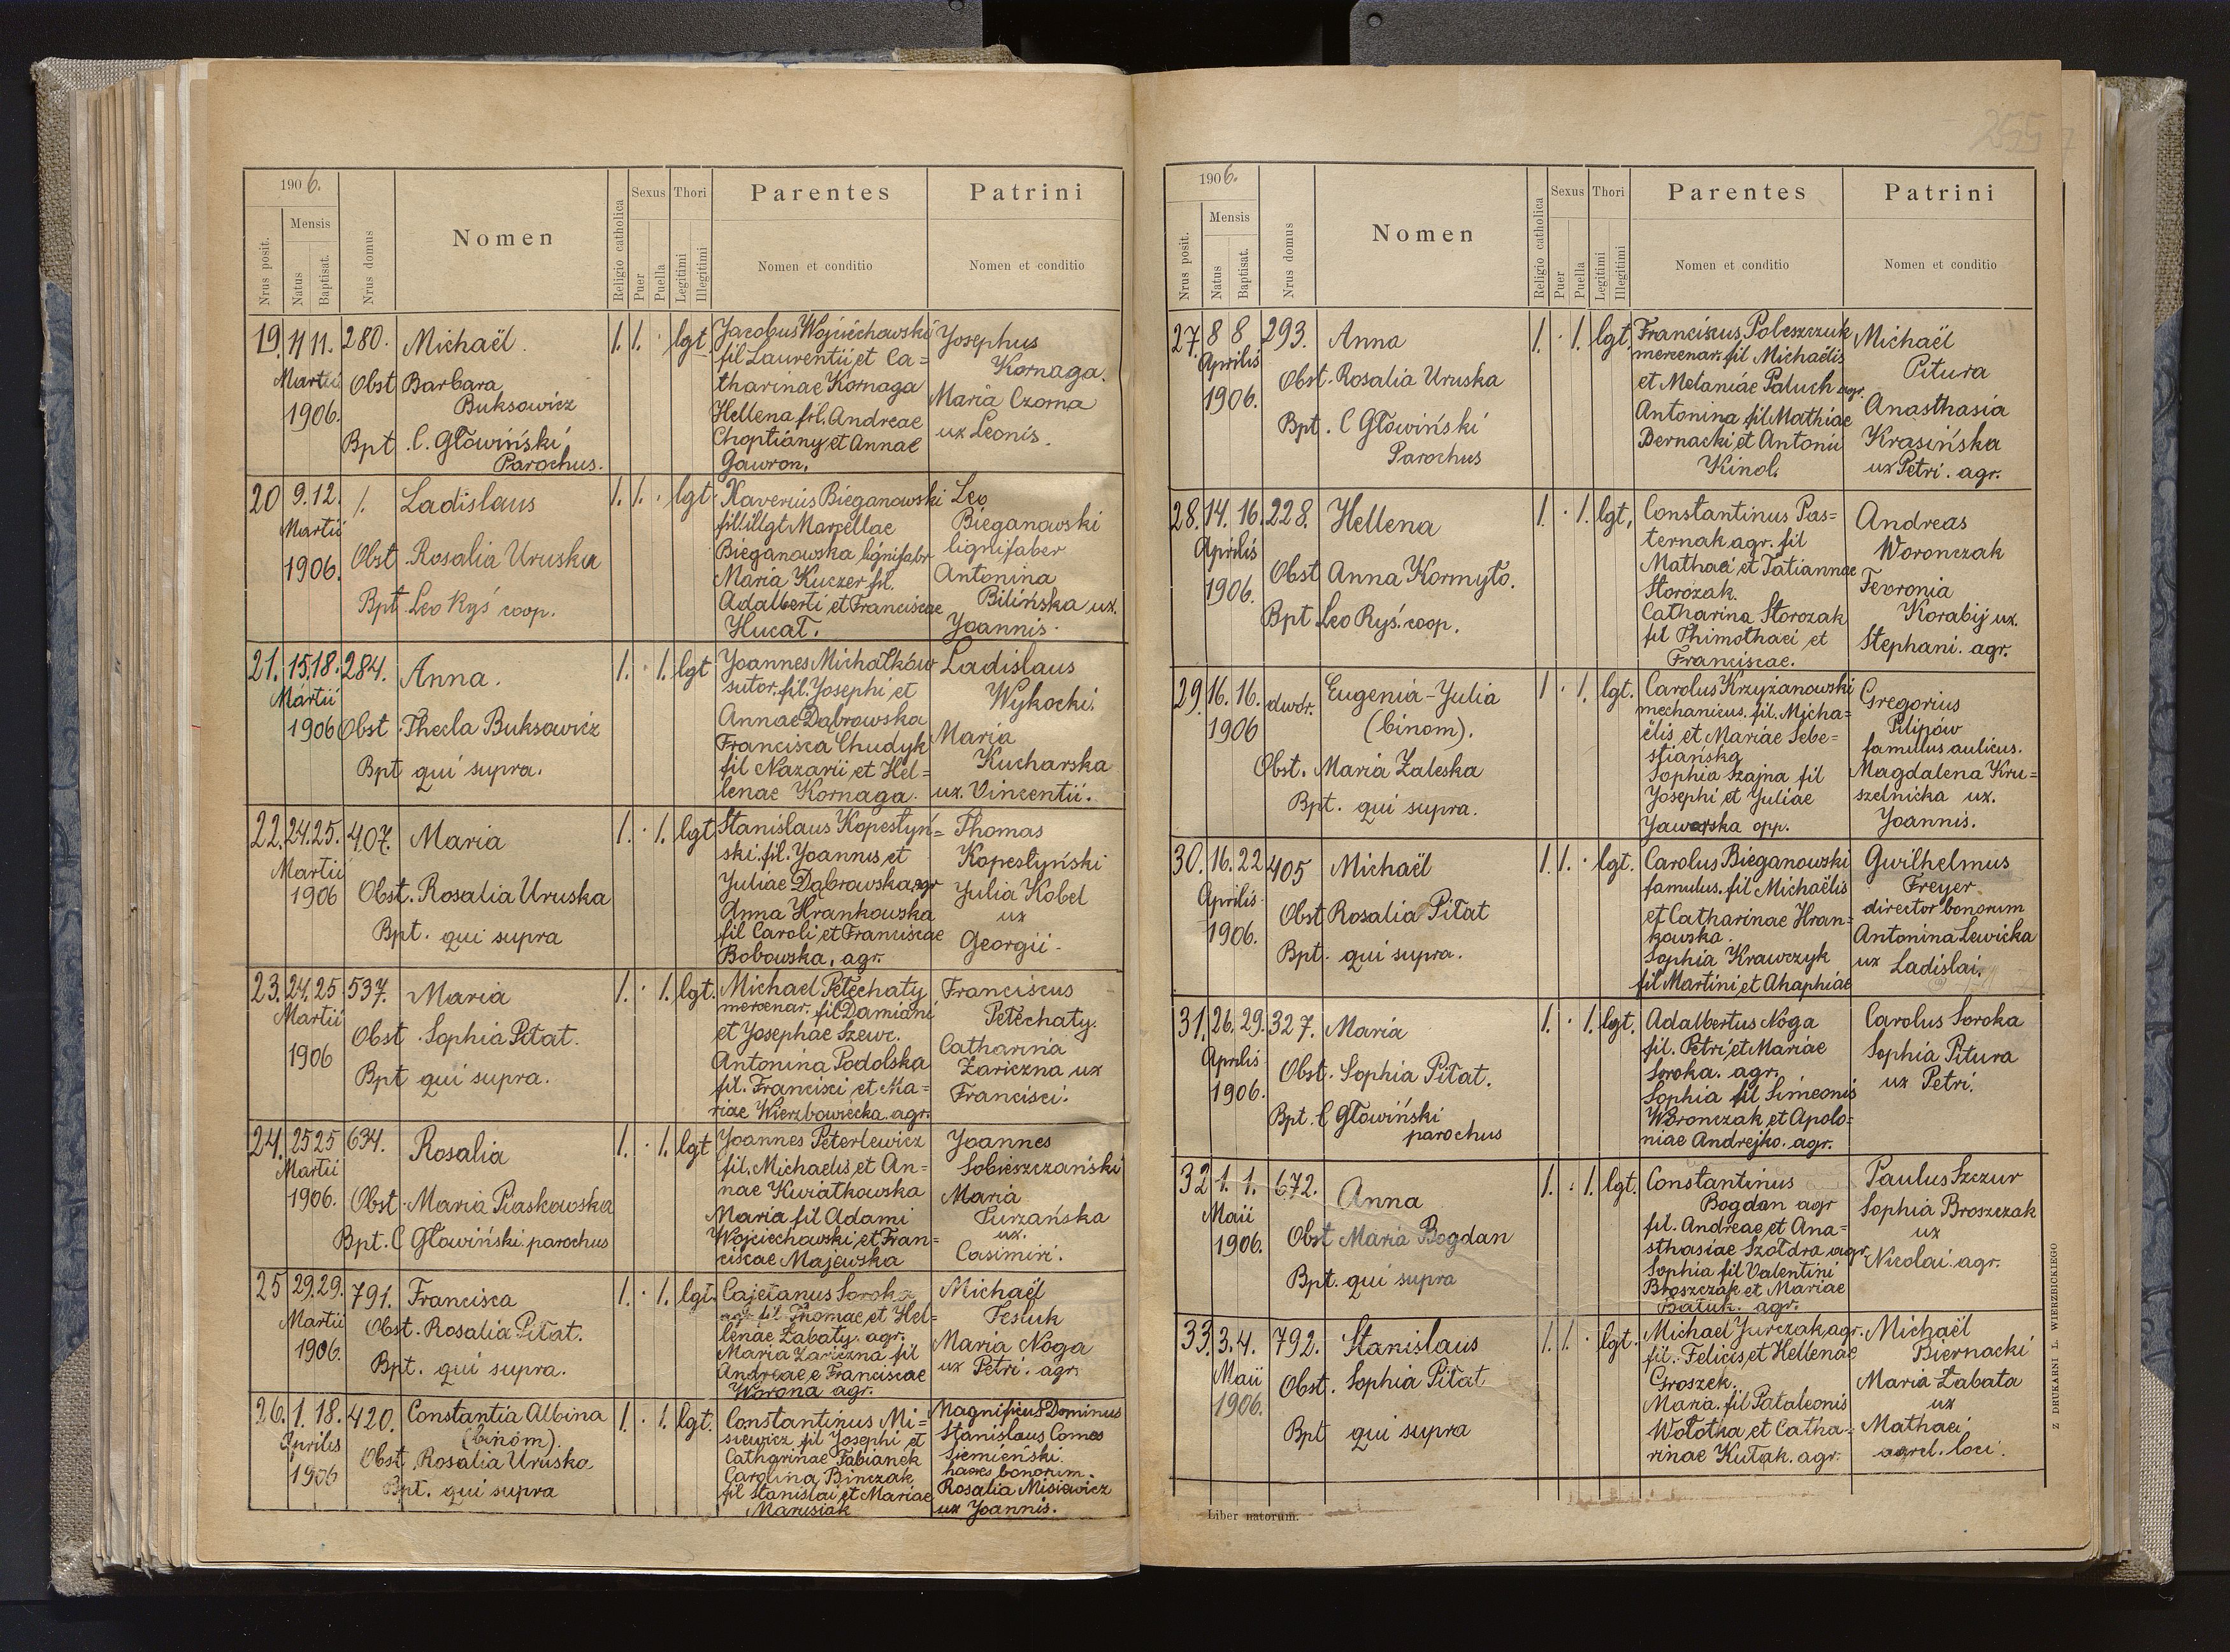 1906.
Nrus posit.
Mensis
Natus
Baptisat.
Nrus domus
Nomen
Religio catholica
Sexus
Puer
Puella
Thori
Legitimi
Illegitimi
Parentes
Nomen et conditio
Patrini
Nomen et conditio
19. 11 11. 280. Michaël. 1. 1. · lgt
Martii
1906.
Obst Barbara
Buksowicz
Bpt. C. Głowiński
Parochus.
Jacobus Wojciechowski
fil Laurentii et Ca=
tharinae Kornaga
Hellena fil. Andreae
Choptiany et Annae
Gawron.
Josephus
Kornaga.
Maria Czorna
ux Leonis.
20 9. 12. 1. Ladislaus 1. 1. · lgt
Martii
1906.
Obst Rosalia Uruska
Bpt Leo Ryś coop.
Xaverius Bieganowski
fil. illgt Marcellae
Bieganowska lignifabr
Maria Kuczer fil.
Adalberti et Franciscae
Hucał.
Leo
Bieganowski
lignifaber
Antonina
Bilińska ux.
Joannis.
21. 15. 18. 284. Anna. 1. · 1. lgt
Martii
1906
Obst. Thecla Buksowicz
Bpt qui supra.
Joannes Michałków
sutor. fil. Josephi et
Annae Dąbrowska
Francisca Chudyk
fil Nazarii et Hel=
lenae Kornaga.
Ladislaus
Wykocki.
Maria
Kucharska
ux. Vincentii.
22. 24. 25. 407. Maria 1. · 1. lgt
Martii
1906
Obst. Rosalia Uruska
Bpt. qui supra
Stanislaus Kopestyń=
ski. fil. Joannis et
Juliae Dąbrowska agr
Anna Hrankowska
fil Caroli et Franciscae
Bobowska, agr.
Thomas
Kopestyński
Julia Kobel
ux
Georgii.
23. 24. 25 537. Maria 1. · 1. lgt.
Martii
1906
Obst. Sophia Pitat.
Bpt qui supra.
Michael Petechaty
mercenar. fil Damiani
et Josephae Szewc.
Antonina Podolska
fil. Francisci et Ma=
riae Wierzbowiecka. agr.
Franciscus
Petechaty.
Catharina
Zariczna ux
Francisci.
24. 25 25 634. Rosalia 1. · 1. lgt
Martii
1906.
Obst. Maria Piaskowska
Bpt. C Głowiński parochus
Joannes Peterlewicz
fil. Michaelis et An=
nae Kwiatkowska
Maria fil Adami
Wojciechowski et Fran=
ciscae Majewska
Joannes
Sobieszczański
Maria
Purzańska
ux.
Casimiri.
25 29. 29. 791. Francisca 1. · 1. lgt.
Martii
1906.
Obst. Rosalia Pitat.
Bpt. qui supra.
Cajetanus Soroka
agr. fil Thomae et Hel=
lenae Zabaty. agr.
Maria Zariczna fil
Andreae e Franciscae
Worona agr.
Michaël
Fesiuk
Maria Noga
ux Petri. agr.
26. 1. 18. 420. Constantia Albina 1. · 1. lgt.
(binom).
Aprilis
1906
Obst. Rosalia Uruska
Bpt. qui supra
Constantinus Mi=
siewicz fil Josephi et
Catharinae Fabianek
Carolina Binczak
fil Stanislai et Mariae
Marusiak
Magnificus Dominus
Stanislaus Comes
Siemieński.
haeres bonorum.
Rosalia Misiewicz
ux Joannis.
1906.
Nrus posit.
Mensis
Natus
Baptisat.
Nrus domus
Nomen
Religio catholica
Sexus
Puer
Puella
Thori
Legitimi
Illegitimi
Parentes
Nomen et conditio
Patrini
Nomen et conditio
27. 8 8 293. Anna 1. · 1. lgt.
Aprilis
1906.
Obst. Rosalia Uruska
Bpt. C Głowiński
Parochus
Franciscus Poleszczuk
mercenar. fil Michaëlis
et Melaniae Paluch agr.
Antonina fil Mathiae
Bernacki et Antonii
Kinol.
Michaël
Pitura
Anasthasia
Krasińska
ux Petri. agr.
28. 14. 16. 228. Hellena 1. · 1. lgt.
Aprilis
1906.
Obst Anna Kormyło.
Bpt Leo Ryś. coop.
Constantinus Pas=
ternak agr. fil
Mathaei et Tatiannae
Storozak.
Catharina Storozak
fil Thimothaei et
Franciscae.
Andreas
Woronczak
Fevronia
Korabij ux.
Stephani. agr.
29. 16. 16. dwór. Eugenia-Julia 1 · 1. lgt.
1906
(binom).
Obst. Maria Zaleska
Bpt. qui supra.
Carolus Krzyżanowski
mechanicus. fil. Micha=
ëlis et Mariae Sebe=
stiańska
Sophia Szajna fil
Josephi et Juliae
Jaworska opp.
Gregorius
Pilipów
famulus aulicus.
Magdalena Kru=
szelnicka ux.
Joannis.
30. 16. 22 405 Michaël 1. 1. · lgt.
Aprilis
1906.
Obst Rosalia Pitat
Bpt. qui supra.
Carolus Bieganowski
famulus. fil Michaëlis
et Catharinae Hran=
kowska.
Sophia Krawczyk
fil Martini et Ahaphiae
Gwilhelmus
Freyer
director bonorum
Antonina Lewicka
ux Ladislai.
31. 26. 29. 327. Maria 1. · 1. lgt.
Aprilis
1906.
Obst. Sophia Pitat.
Bpt. C Głowiński
parochus
Adalbertus Noga
fil. Petri et Mariae
Soroka. agr.
Sophia fil Simeonis
Woronczak et Apolo=
niae Andrejko. agr.
Carolus Soroka
Sophia Pitura
ux Petri.
32 1. 1. 672. Anna 1. · 1. lgt.
Maii
1906.
Obst Maria Bogdan
Bpt. qui supra
Constantinus
Bogdan agr
fil. Andreae et Ana=
sthasiae Szołdra agr
Sophia fil Valentini
Broszczak et Mariae
Batuk. agr.
Paulus Szczur
Sophia Broszczak
ux
Nicolai agr.
33. 3. 4. 792. Stanislaus 1. 1. · lgt.
Maii
1906.
Obst. Sophia Pitat
Bpt qui supra
Michael Jurczak agr.
fil. Felicis et Hellenae
Groszek.
Maria. fil Pataleonis
Wołotka et Catha=
rinae Kutak. agr.
Michaël
Biernacki
Maria Zabata
ux
Mathaei
loci.
Liber natorum.
Z DRUKARNI L. WIERZBICKIEGO